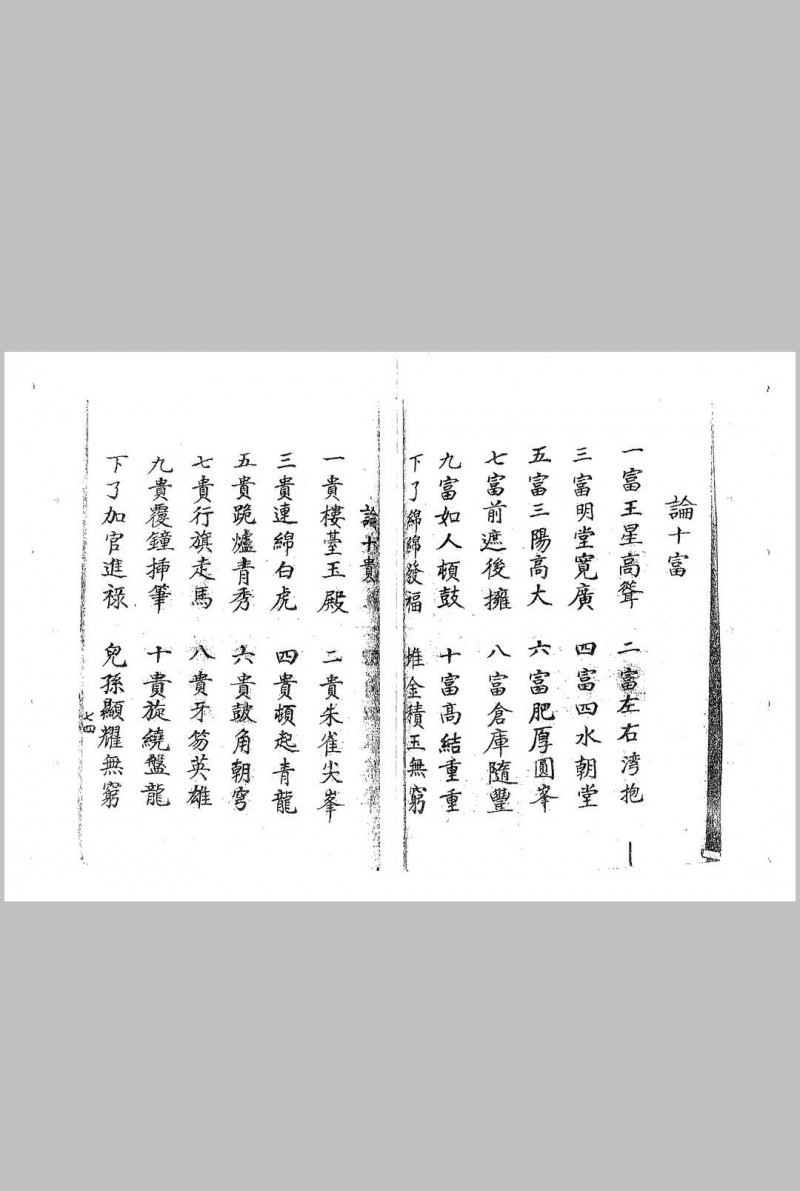 論十富
一富王星高聳　二富左右湾抱
三富明堂寬廣　四富四水朝堂
五富三陽高大　六富肥厚圓峯
七富前遮後擁　八富倉庫隨豐
九富如人頓鼓　十富高結重重
下了綿綿發福　堆金積玉無窮
論十貴
一貴樓臺玉殿　二貴朱雀尖峯
三貴連綿白虎　四貴頓起青龍
五貴跪爐青秀　六貴鼓角朝穹
七貴行旗走馬　八貴牙笏英雄
九貴覆鐘挿筆　十貴旋繞盤龍
下了加官進禄　兒孫顯耀無窮
七四